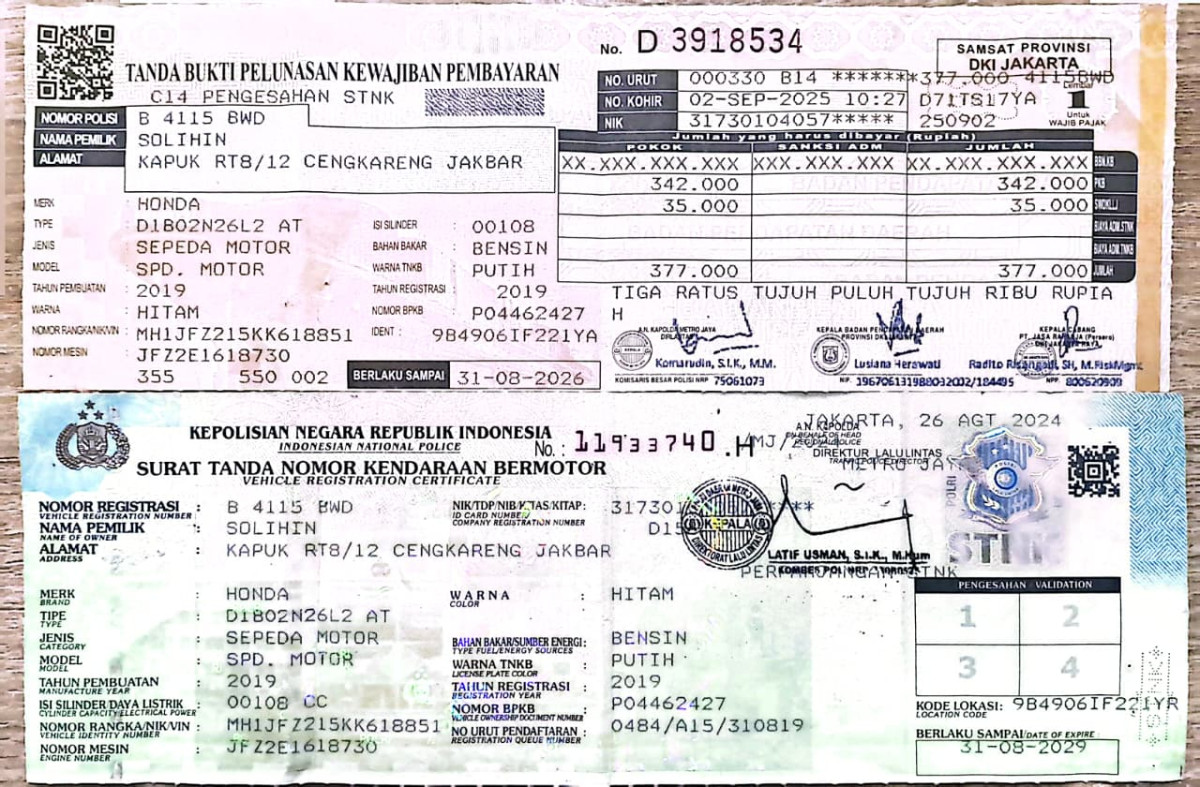 No. D 3918534
SAMSAT PROVINSI
DKI JAKARTA
TANDA BUKTI PELUNASAN KEWAJIBAN PEMBAYARAN
C14 PENGESAHAN STNK
NO. URUT 000330 B14 *******377.000 4115BWD
NO. KOHIR 02-SEP-2025 10:27 D71TS17YA
NIK 31730104057***** 250902
Lembar
1
Untuk
WAJIB PAJAK
NOMOR POLISI B 4115 BWD
NAMA PEMILIK SOLIHIN
ALAMAT KAPUK RT8/12 CENGKARENG JAKBAR
Jumlah yang harus dibayar (Rupiah)
POKOK SANKSI ADM JUMLAH
XX.XXX.XXX.XXX XXX.XXX.XXX.XXX XX.XXX.XXX.XXX BBN.KB
342.000 342.000 PKB
35.000 35.000 SWDKLLJ
BIAYA ADM.STNK
BIAYA ADM.TNKB
377.000 377.000 JUMLAH
TIGA RATUS TUJUH PULUH TUJUH RIBU RUPIA
H
MERK : HONDA
TYPE : D1B02N26L2 AT ISI SILINDER : 00108
JENIS : SEPEDA MOTOR BAHAN BAKAR : BENSIN
MODEL : SPD. MOTOR WARNA TNKB : PUTIH
TAHUN PEMBUATAN : 2019 TAHUN REGISTRASI : 2019
WARNA : HITAM NOMOR BPKB : P04462427
NOMOR RANGKA/NIK/VIN : MH1JFZ215KK618851 IDENT : 9B4906IF221YA
NOMOR MESIN : JFZ2E1618730
355 550 002 BERLAKU SAMPAI 31-08-2026
A.N. KAPOLDA METRO JAYA
DIRLANTAS
Komarudin, S.I.K., M.M.
KOMISARIS BESAR POLISI NRP 75061073
KEPALA BADAN PENDAPATAN DAERAH
PROVINSI DKI JAKARTA
Lusiana Herawati
NIP. 196706131988032002/184495
KEPALA CABANG
PT. JASA RAHARJA (Persero)
DKI JAKARTA RAYA
Radito Risangadi, SH, M.RiskMgmt
NPP. 800620909
KEPOLISIAN NEGARA REPUBLIK INDONESIA
INDONESIAN NATIONAL POLICE
No.: 11933740.H
SURAT TANDA NOMOR KENDARAAN BERMOTOR
VEHICLE REGISTRATION CERTIFICATE
JAKARTA, 26 AGT 2024
A.N. KAPOLDA
ON BEHALF OF HEAD
REGIONAL POLICE
DIREKTUR LALU LINTAS
TRAFFIC POLICE DIRECTOR
KEPALA
DIREKTORAT LALU LINTAS
LATIF USMAN, S.I.K., M.Hum
PERPANJANGAN STNK
POLRI
STNK
NOMOR REGISTRASI : B 4115 BWD
VEHICLE REGISTRATION NUMBER
NAMA PEMILIK : SOLIHIN
NAME OF OWNER
ALAMAT : KAPUK RT8/12 CENGKARENG JAKBAR
ADDRESS
NIK/TDP/NIB/KITAS/KITAP:
ID CARD NUMBER
COMPANY REGISTRATION NUMBER
MERK : HONDA
BRAND
TIPE : D1B02N26L2 AT
TYPE
JENIS : SEPEDA MOTOR
CATEGORY
MODEL : SPD. MOTOR
MODEL
TAHUN PEMBUATAN : 2019
MANUFACTURE YEAR
ISI SILINDER/DAYA LISTRIK : 00108 CC
CYLINDER CAPACITY/ELECTRICAL POWER
NOMOR RANGKA/NIK/VIN : MH1JFZ215KK618851
VEHICLE IDENTITY NUMBER
NOMOR MESIN : JFZ2E1618730
ENGINE NUMBER
WARNA : HITAM
COLOR
BAHAN BAKAR/SUMBER ENERGI : BENSIN
TYPE FUEL/ENERGY SOURCES
WARNA TNKB : PUTIH
LICENSE PLATE COLOR
TAHUN REGISTRASI : 2019
REGISTRATION YEAR
NOMOR BPKB : P04462427
VEHICLE OWNERSHIP DOCUMENT NUMBER
NO URUT PENDAFTARAN : 0484/A15/310819
REGISTRATION QUEUE NUMBER
PENGESAHAN / VALIDATION
1 2
3 4
KODE LOKASI: 9B4906IF221YR
LOCATION CODE
BERLAKU SAMPAI/DATE OF EXPIRE :
31-08-2029